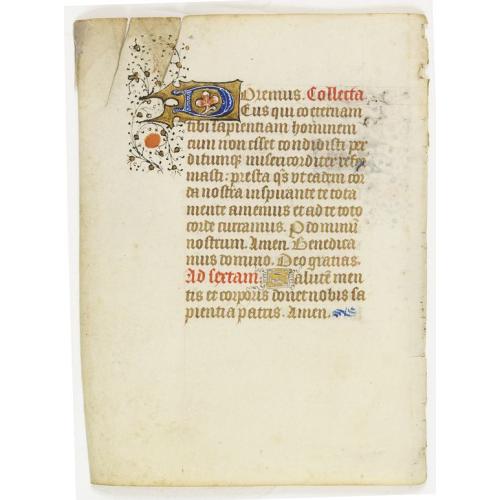 Oremus. Collecta
Deus qui coeternam
tibi sapientiam hominem
cum non esset condidisti per
ditumq; misericorditer refor
masti: presta qs vt eadem cor
da nostra inspirante te tota
mente amemus et ad te toto
corde curramus. P dominū
nostrum. Amen. Benedica
mus domino. Deo gratias.
Ad sextam Salutē men
tis et corporis donet nobis sa
pientia patris. Amen.